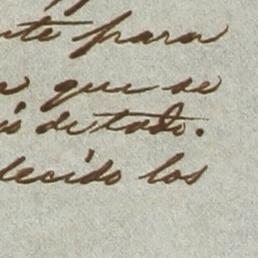 nte para
que se
is de todo.
lecido los